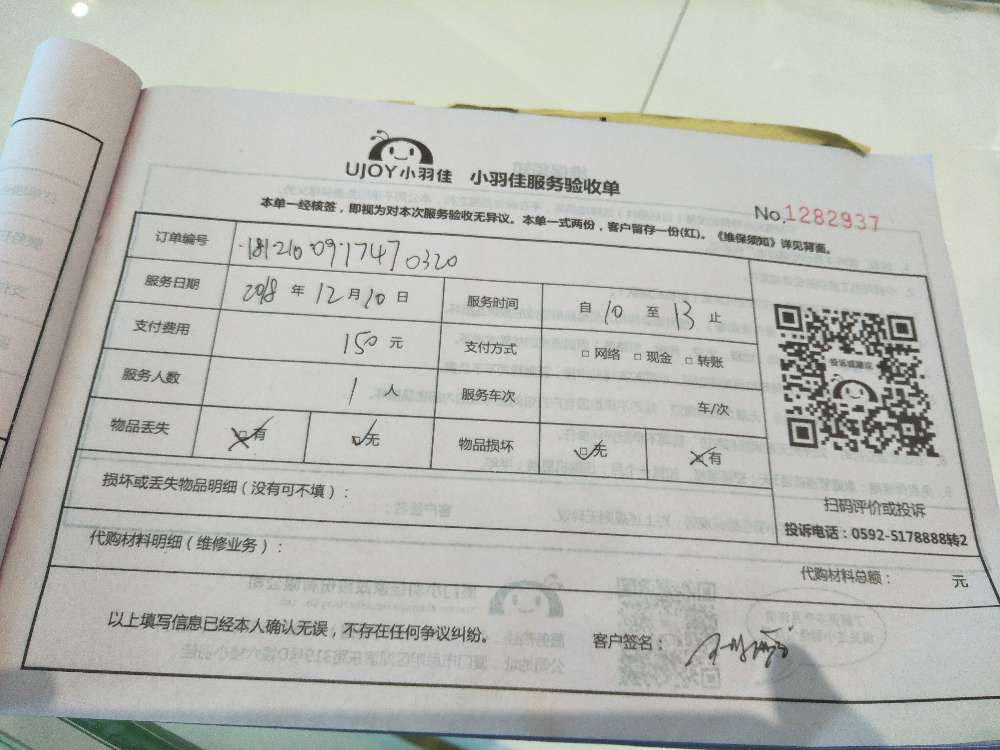 UJOY小羽佳 小羽佳服务验收单
No.1282937
本单一经核签，即视为对本次服务验收无异议。本单一式两份，客户留存一份(红)。《维保须知》详见背面。
订单编号 181210 0917470320
服务日期 2018 年 12 月 10 日 服务时间 自 10 至 13 止
支付费用 150 元 支付方式 □ 网络 □ 现金 □ 转账
服务人数 1 人 服务车次 车/次
物品丢失 □有 □无 物品损坏 □无 □有
投诉或建议
扫码评价或投诉
投诉电话：0592-5178888转2
损坏或丢失物品明细（没有可不填）：
代购材料明细（维修业务）：
代购材料总额： 元
以上填写信息已经本人确认无误，不存在任何争议纠纷。 客户签名：